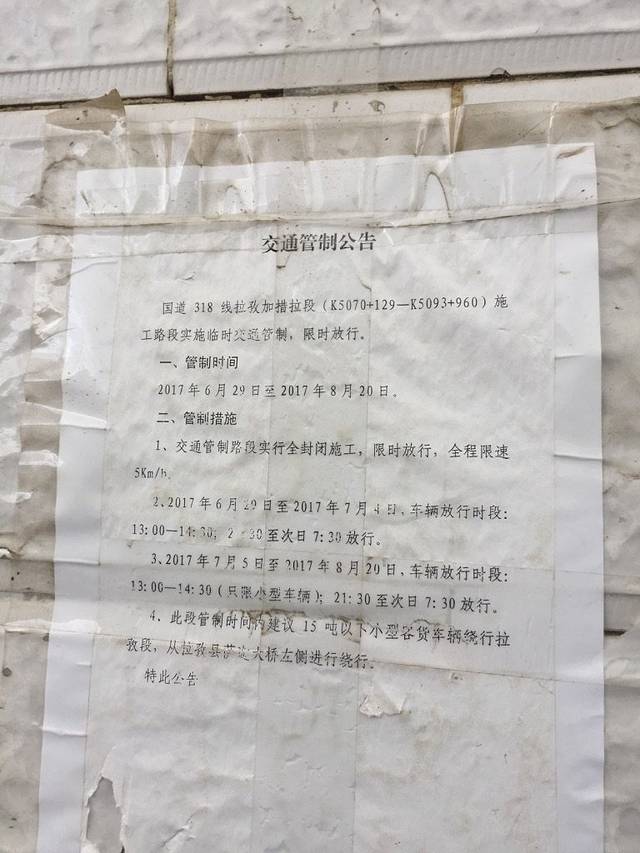 交通管制公告
国道 318 线拉孜加措拉段（K5070+129—K5093+960）施
工路段实施临时交通管制，限时放行。
一、管制时间
2017 年 6 月 29 日至 2017 年 8 月 20 日。
二、管制措施
1、交通管制路段实行全封闭施工，限时放行，全程限速
5Km/h.
2、2017 年 6 月 29 日至 2017 年 7 月 4 日，车辆放行时段：
13:00—14:30； 2 :30 至次日 7:30 放行。
3、2017 年 7 月 5 日至 2017 年 8 月 20 日，车辆放行时段：
13:00—14:30（只限小型车辆）；21:30 至次日 7:30 放行。
4、此段管制时间内建议 15 吨以下小型客货车辆绕行拉
孜段，从拉孜县 大桥左侧进行绕行。
特此公告